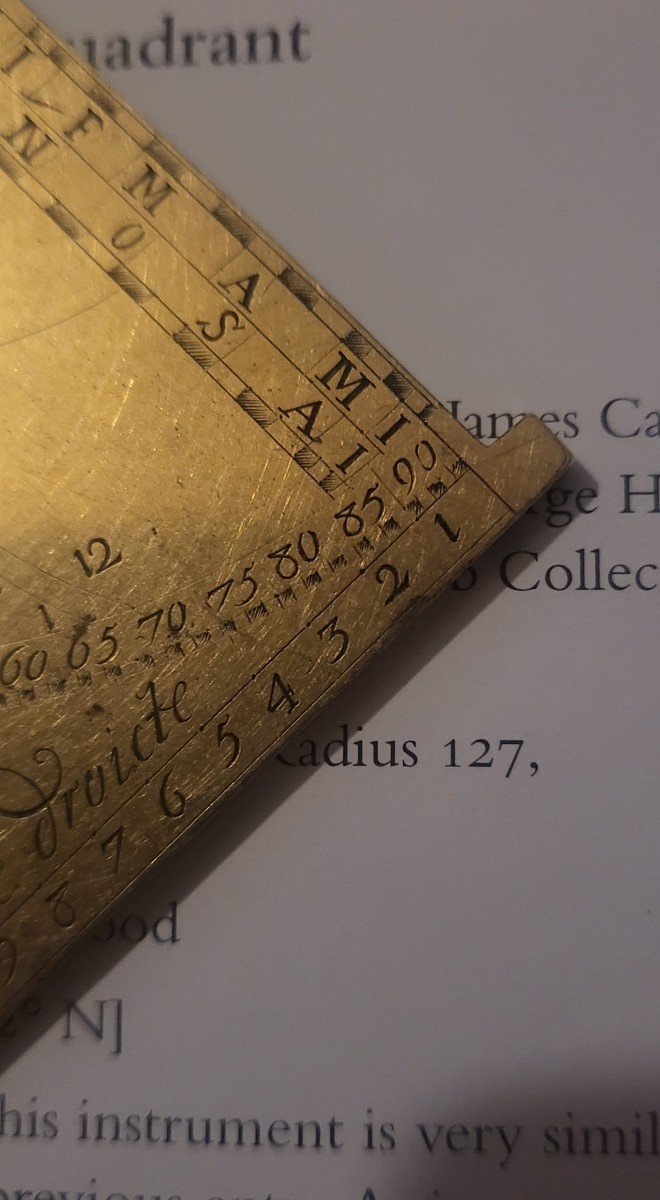 uadrant
I F M A M I
N O S A I
James Ca
ge H
Collec
12
1
60 65 70 75 80 85 90
droicte
1 2 3 4 5 6 7 8 9
adius 127,
ood
° N]
his instrument is very simil